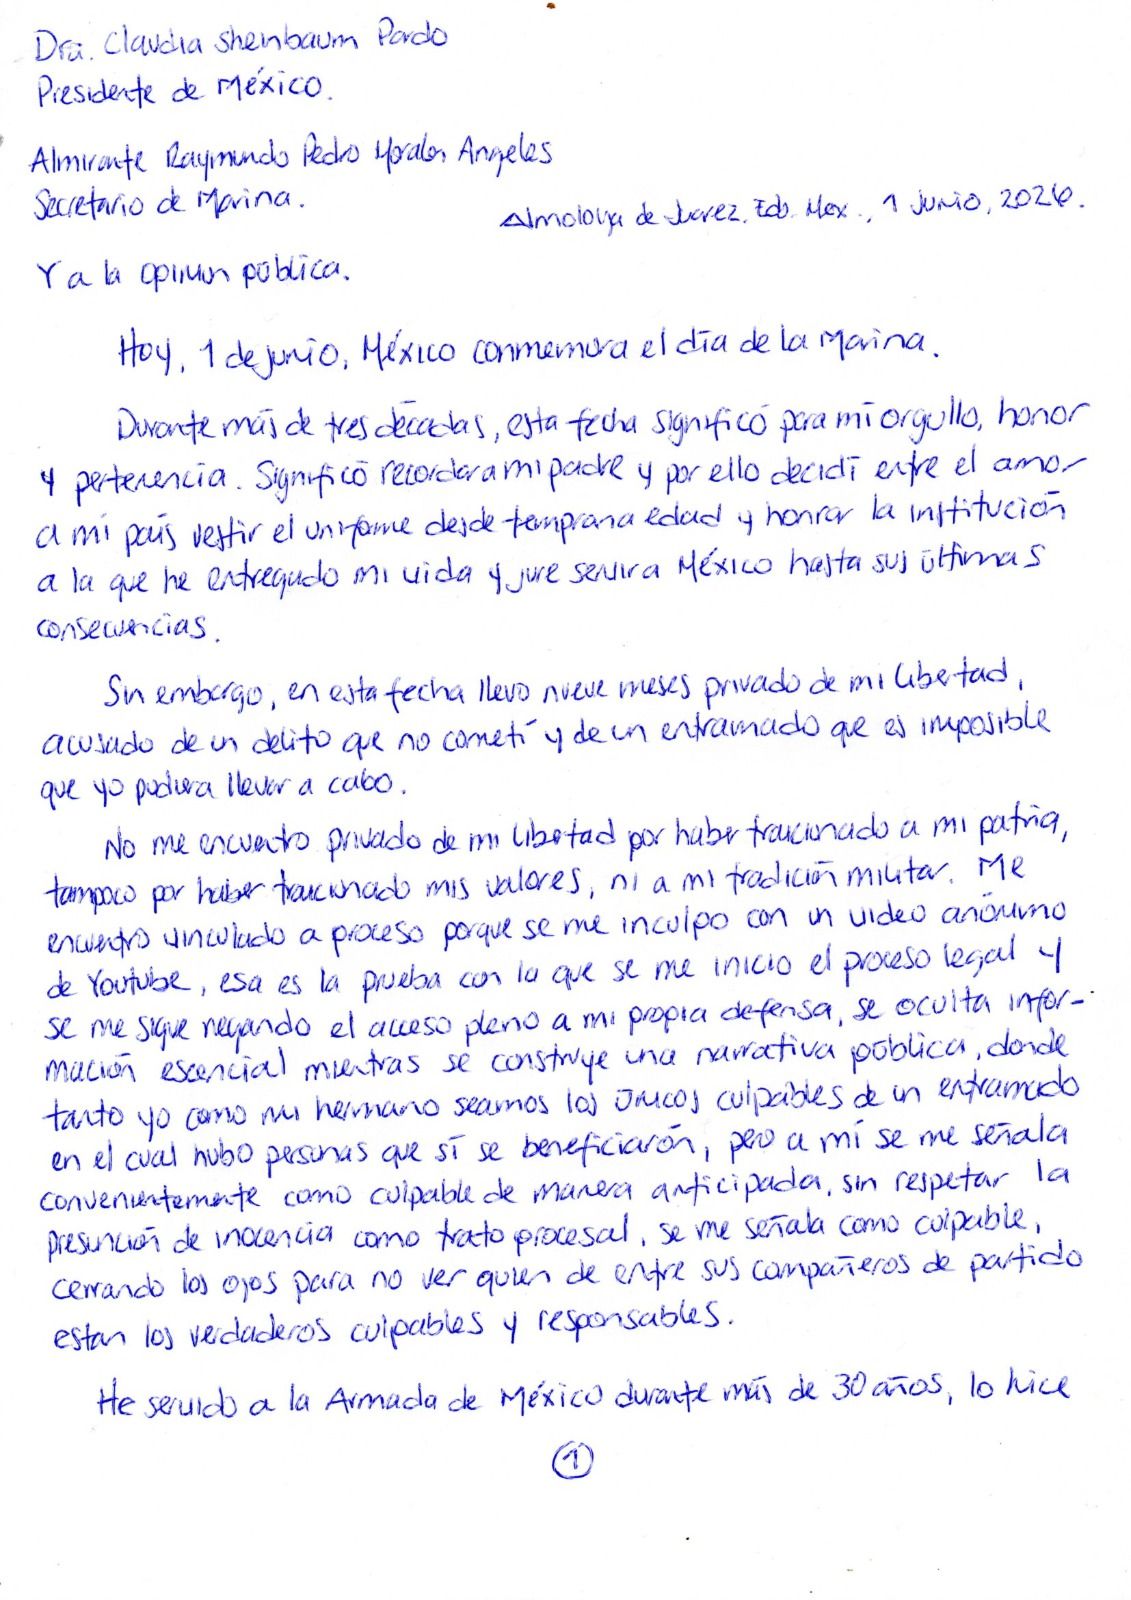 Dra. Claudia Sheinbaum Pardo
Presidente de México.
Almirante Raymundo Pedro Morales Angeles
Secretario de Marina.
Almoloya de Juarez. Edo. Mex., 1 junio, 2026.
Y a la opinion pública.
Hoy, 1 de junio, México conmemora el día de la Marina.
Durante más de tres décadas, esta fecha significó para mí orgullo, honor
y pertenencia. Significó recordar a mi padre y por ello decidí entre el amor
a mi país vestir el uniforme desde temprana edad y honrar la institución
a la que he entregado mi vida y jure servir a México hasta sus últimas
consecuencias.
Sin embargo, en esta fecha llevo nueve meses privado de mi libertad,
acusado de un delito que no cometí y de un entramado que es imposible
que yo pudiera llevar a cabo.
No me encuentro privado de mi libertad por haber traicionado a mi patria,
tampoco por haber traicionado mis valores, ni a mi tradición militar. Me
encuentro vinculado a proceso porque se me inculpo con un video anónimo
de Youtube, esa es la prueba con la que se me inicio el proceso legal y
se me sigue negando el acceso pleno a mi propia defensa, se oculta infor-
mación escencial mientras se construye una narrativa pública, donde
tanto yo como mi hermano seamos los únicos culpables de un entramado
en el cual hubo personas que sí se beneficiarón, pero a mí se me señala
convenientemente como culpable de manera anticipada, sin respetar la
presunción de inocencia como trato procesal, se me señala como culpable,
cerrando los ojos para no ver quien de entre sus compañeros de partido
estan los verdaderos culpables y responsables.
He servido a la Armada de México durante más de 30 años, lo hice
1